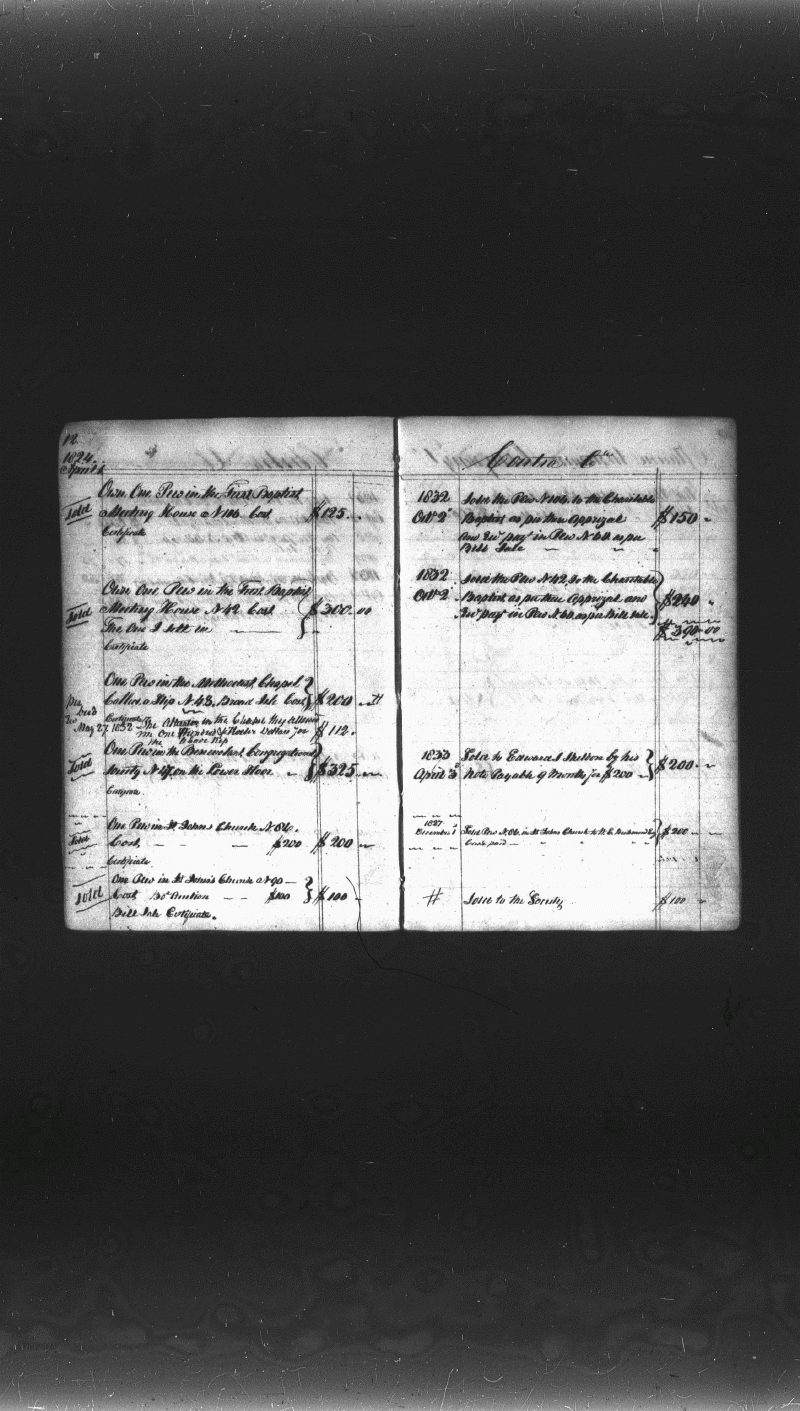 12
1824
April 1
Own One Pew in the First Baptist
Sold Meeting House N 106. Cost $125.
Certificate
Own One Pew in the First Baptist
Sold Meeting House N 42 Cost $300.00
The One I sett in
Certificate
One Pew in the Methodist Chapel
Called a Slip N 43, Broad Isle Cost $200
May 27 1832 The in the Chapel they allowed
me One Hundred & Twelve Dollars for $112.
the above Slip
One Pew in the Benevolent Congregational
Sold Society N 47 on the Lower Floor $325
Certificate
One Pew in St Johns Church N 86.
Sold Cost, $200 $200
Certificate
One Pew in St John's Church N 90
Sold Cost $100 $100
Bill Sale Certificate.
Contra Cr
1832 Sold the Pew N 106 to the Charitable
Octr 2 Baptist as per their Apprizal $150
and pay in Pew N 60 as per
Bill Sale
1832 Sold the Pew N 42 To the Charitable
Octr 2 Baptist as per their Apprizal and $240
pay in Pew N 60 as per Bill Sale
$390 00
1833 Sold to Edward Shelton by his
April 3 Note Payable 9 Months for $200 $200
1827
December 1 Sold Pew N 86 in St Johns Church to
Cash paid $200
# Sold to the Society $100